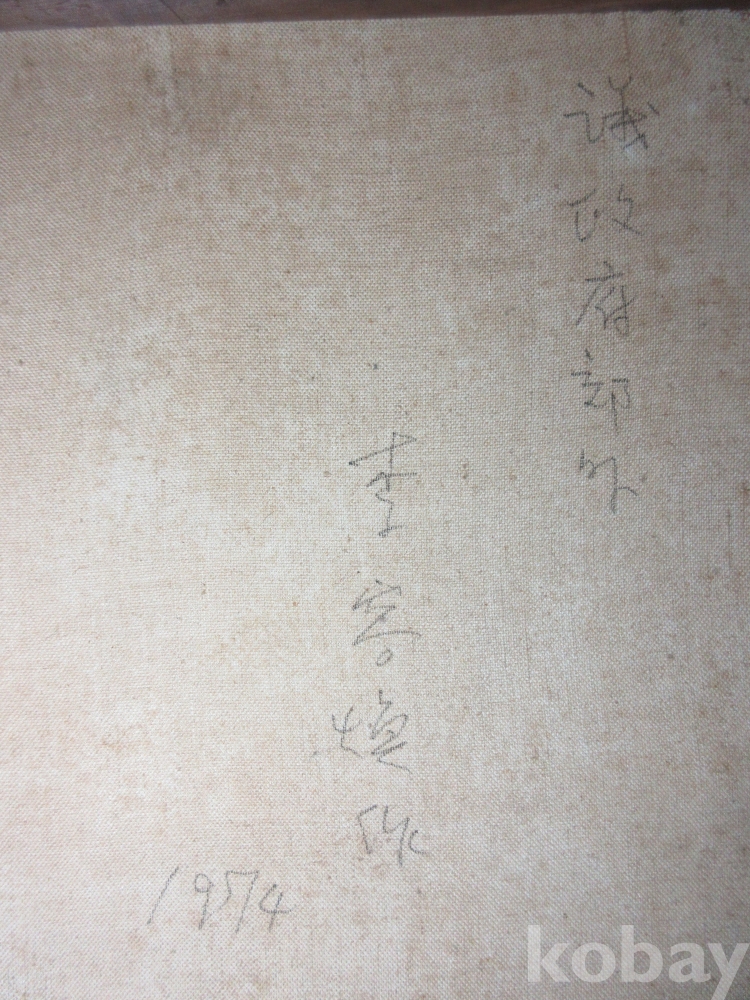 議政府部外
李容 作
1974
kobay